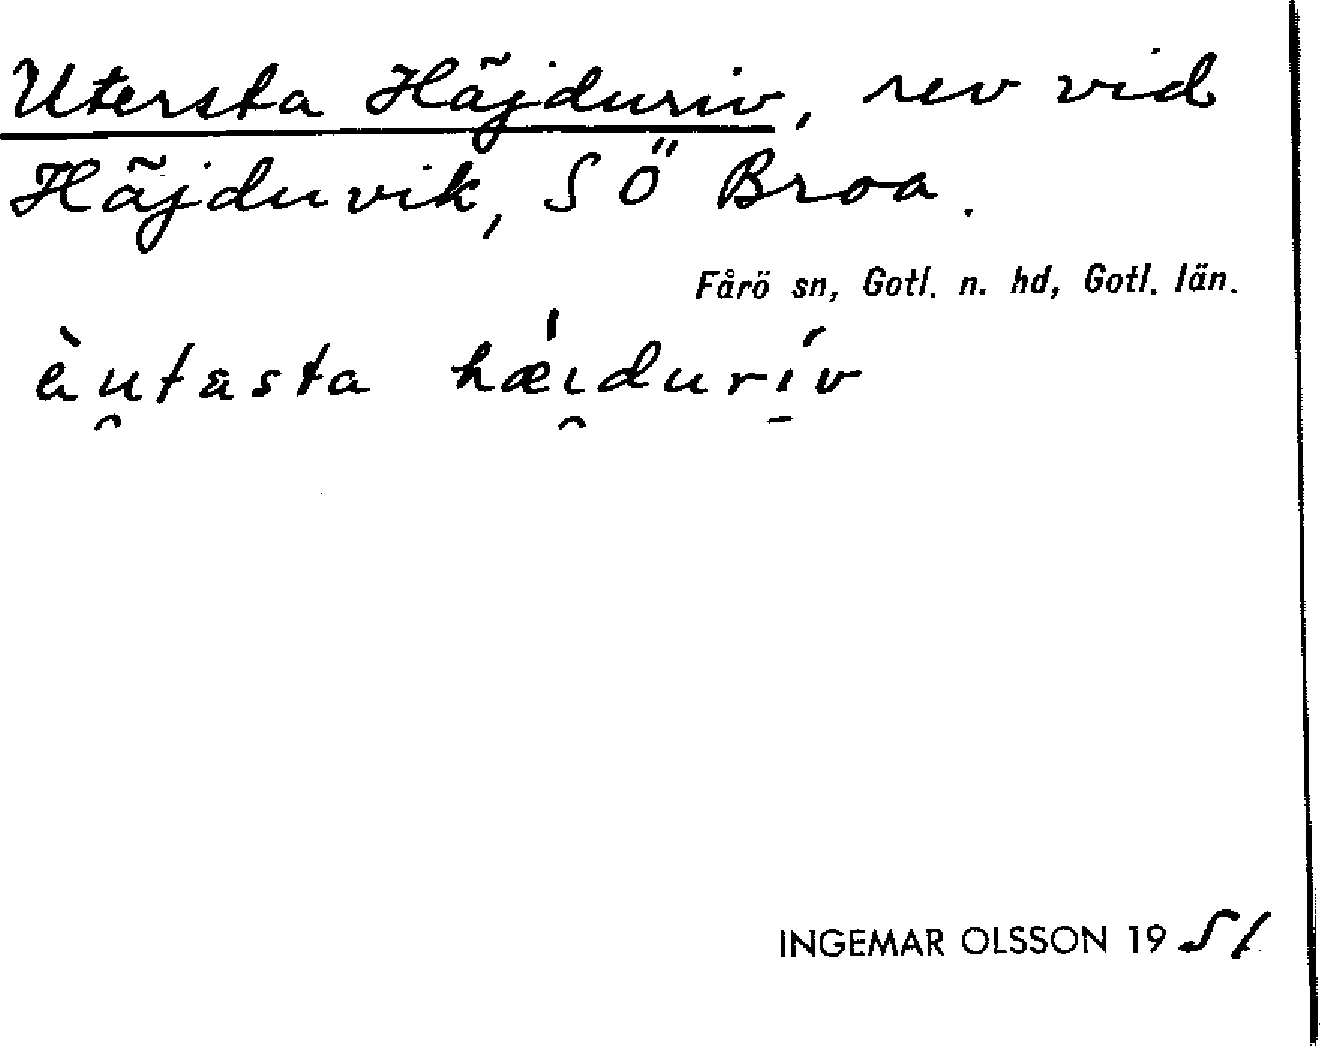 Utersta Häjduriv, rev vid
Häjduvik, SÖ Broa.
Fårö sn, Gotl. n. hd, Gotl. län.
èu̯tasta hǽi̯durí̱v
INGEMAR OLSSON 1951